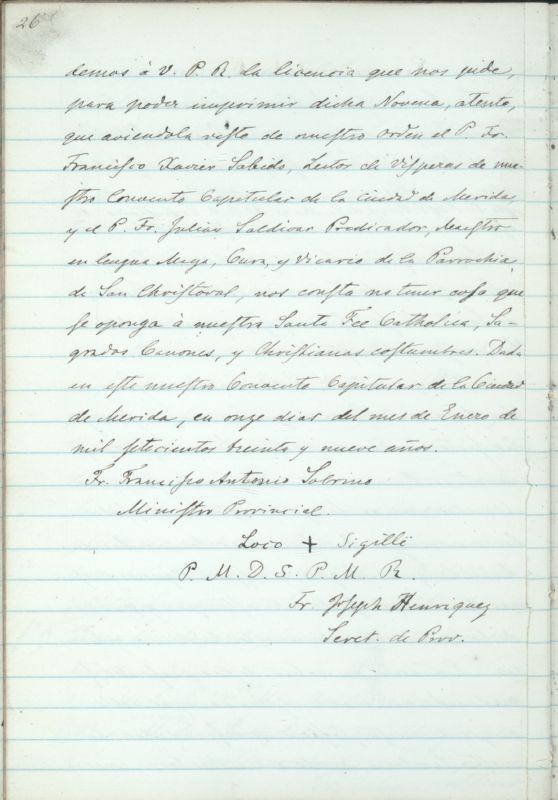 26
demos â V. P. R. la licencia que nos pide,
para poder imprimir dicha Novena, atento,
que aviendola visto de nuestro orden el P. Fr.
Francisco Xavier Sabido, Lector de Visperas de nue-
stro Convento Capitular de la Ciudad de Merida,
y el P. Fr. Julian Saldivar Predicador, Maestro
en lengua Maya, Cura, y Vicario de la Parrochia
de San Christoval, nos consta no tener cosa que
se oponga â nuestra Santa Fee Catholica, Sa-
grados Canones, y Christianas costumbres. Dada
en este nuestro Convento Capitular de la Ciudad
de Merida, en onze dias del mes de Enero de
mil setecientos treinta y nueve años.
Fr. Francisco Antonio Sabrino
Ministro Provincial.
Loco + Sigilli
P. M. D. S. P. M. R.
Fr. Joseph Henriquez
Secret. de Prov.